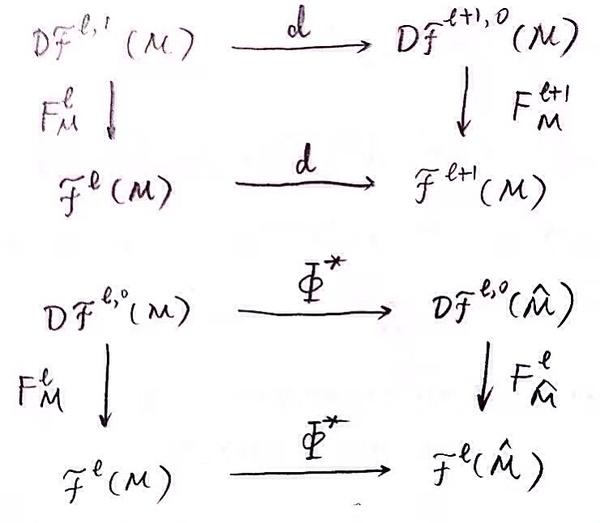 d
D𝓕̃^{ℓ,1}(M) → D𝓕̃^{ℓ+1,0}(M)
F_M^ℓ ↓ ↓ F_M^{ℓ+1}
d
𝓕̃^ℓ(M) → 𝓕̃^{ℓ+1}(M)
Φ*
D𝓕̃^{ℓ,0}(M) → D𝓕̃^{ℓ,0}(M̂)
F_M^ℓ ↓ ↓ F_M̂^ℓ
Φ*
𝓕̃^ℓ(M) → 𝓕̃^ℓ(M̂)